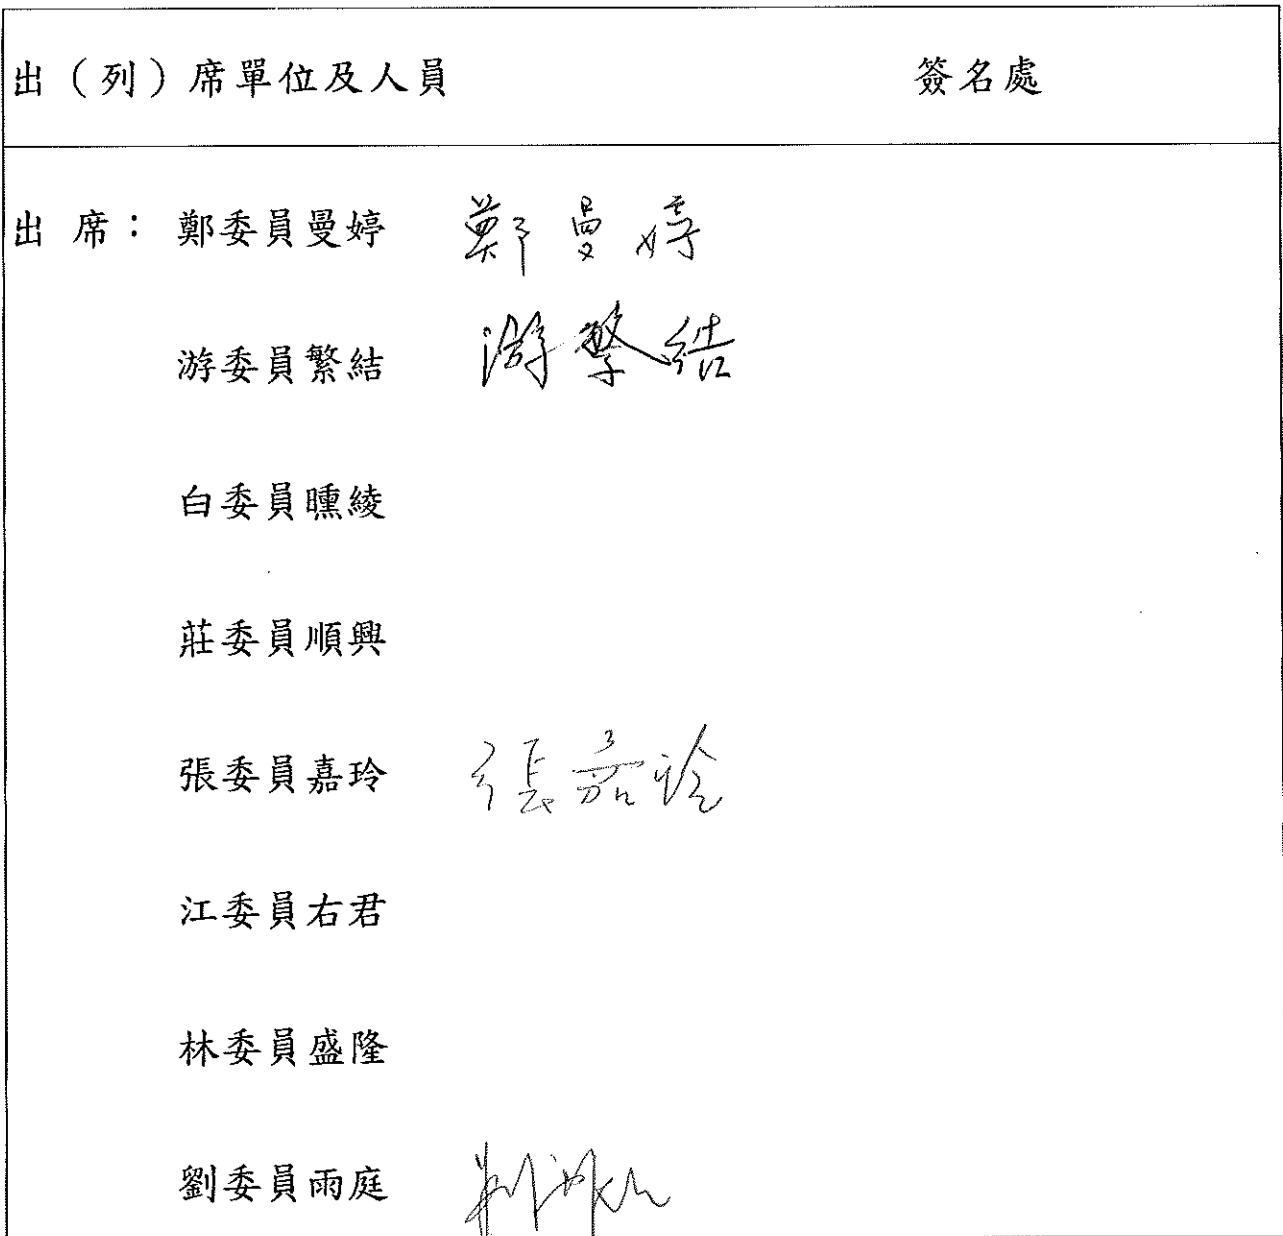 出（列）席單位及人員 簽名處
出 席： 鄭委員曼婷 鄭曼婷
游委員繁結 游繁結
白委員曛綾
莊委員順興
張委員嘉玲 張嘉玲
江委員右君
林委員盛隆
劉委員雨庭